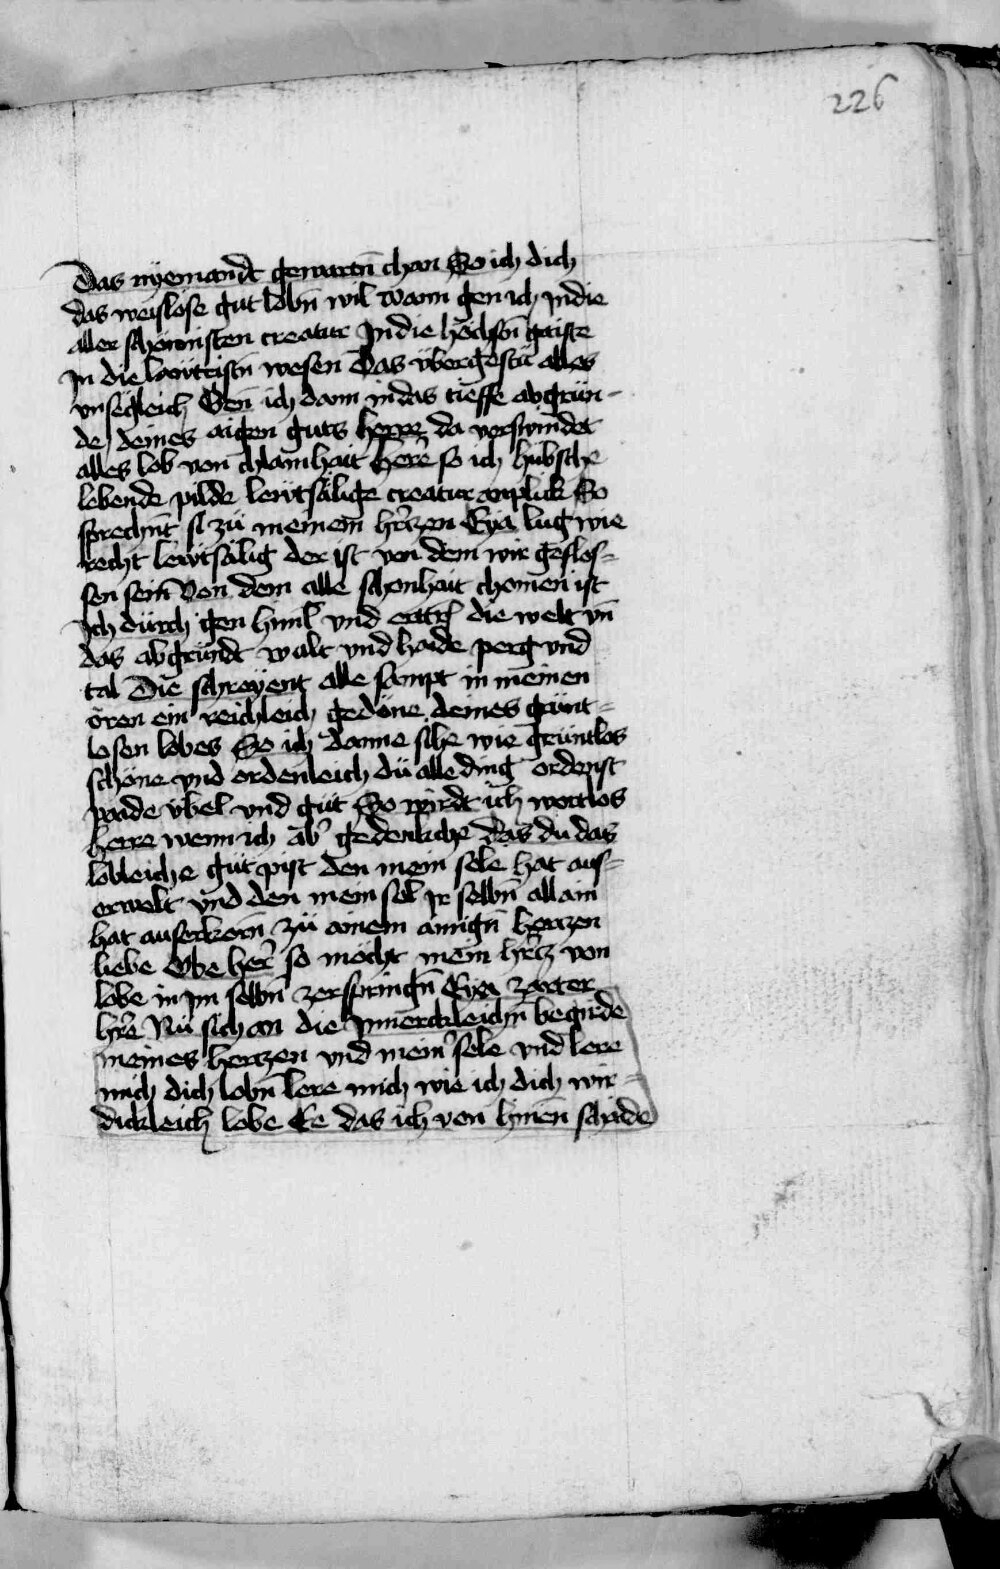 226
Das nyemandt gewartn̄ chan So ich dich
das weislose gut lobn̄ wil wann gen ich in die
aller schonnisten creatur In die höchsn̄ geiste
In die lautristn̄ wesen Das vbergestu alles
vnsegleich Gen̄ ich dann in das tieffe abgrün-
de deines aigen guts herre da verswindet
alles lob von chlainhait Herre so ich hübsche
lebende pilde lewtsälige creatur anplick So
sprechnt si zü meinem hr̄tzen Eya lug wie
recht lewtsälig der ist von dem wir geflos-
sen sein Von dem alle schonhait chomen ist
Ich dürch gen himl̄ vnd ertrī die welt vn̄
das abgründt walt vnd haide perg vnd
tal Die schreyent alle sampt in meinen
ören ein reichleich gedöne deines grünt-
losen lobes So ich danne sihe wie grüntlos
schöne vnd ordenleich dü alle ding ordenst
paade übel vnd güt So wirdt ich wortlos
herre wenn ich ab' gedenkche das du das
lobleiche güt pist den mein sele hat aus-
erwelt vnd den mein sel ir selbn̄ allain
hat auserkorn̄ zü ainem ainign̄ hertzen
liebe Obe her' so möcht mein hr̄tz von
lobe in im selbn̄ zerspringn̄ Eya zarter
hr̄e Nü sich an die Innerckleichn̄ begirde
meines hertzen vnd mein' sele vnd lere
mich dich lobn̄ lere mich wie ich dich wir-
dickleich lobe Ee das ich von hinen schaide